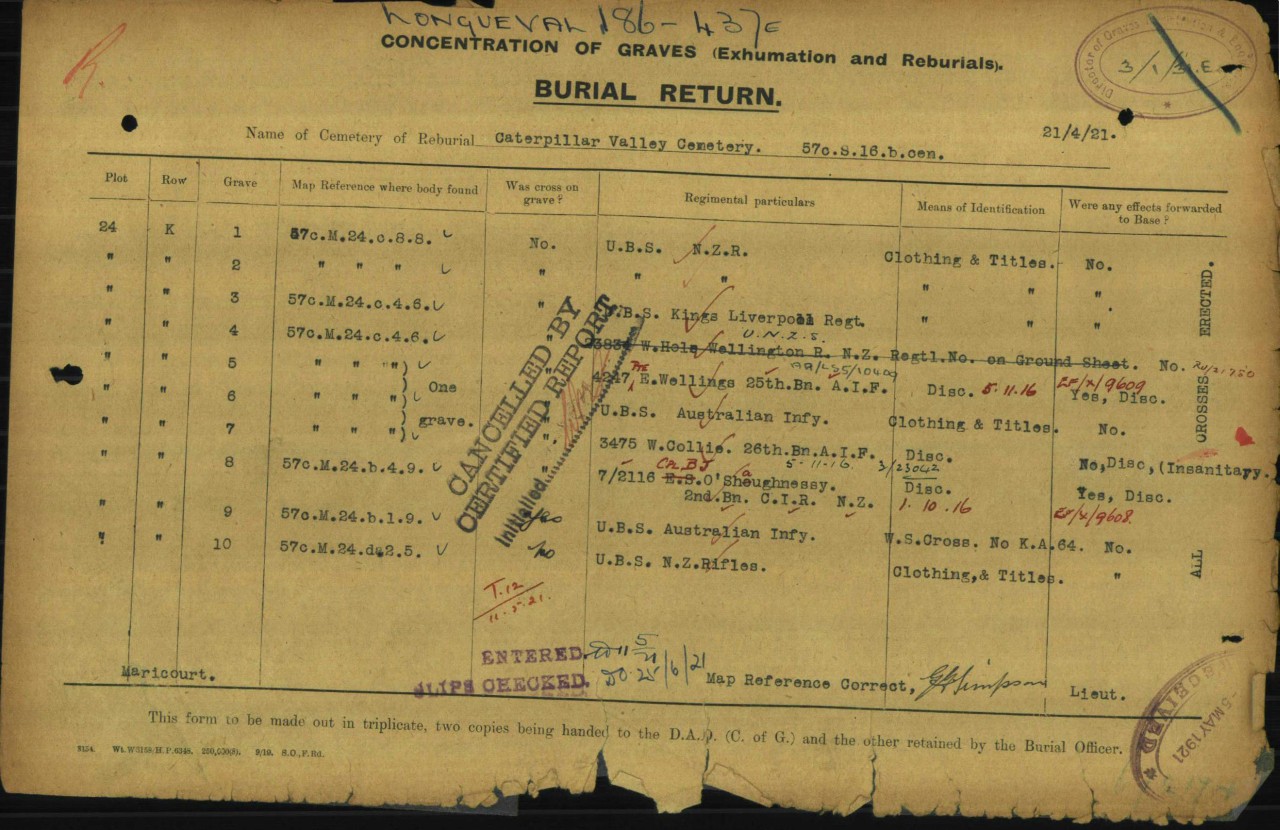 LONGUEVAL 186-437E
CONCENTRATION OF GRAVES (Exhumation and Reburials).
BURIAL RETURN.
3/1/
21/4/21.
Name of Cemetery of Reburial Caterpillar Valley Cemetery. 57c.S.16.b.cen.
Plot Row Grave Map Reference where body found Was cross on grave? Regimental particulars Means of Identification Were any effects forwarded to Base?
24 K 1 57c.M.24.c.8.8. No. U.B.S. N.Z.R. Clothing & Titles. No.
" " 2 " " " " " " " " "
" " 3 57c.M.24.c.4.6. " U.B.S. Kings Liverpool Regt. " " "
U.N.Z.S.
" " 4 57c.M.24.c.4.6. " W.Hole Wellington R. N.Z. Regtl.No. on Ground Sheet. No.
" " 5 " " " " 4247 Pte E.Wellings 25th.Bn. A.I.F. Disc. 5.11.16 Yes, Disc. EF/X/9609
" " 6 " " " One U.B.S. Australian Infy. Clothing & Titles. No.
" " 7 " " " grave. " 3475 W.Collie. 26th.Bn.A.I.F. Disc. No,Disc,(Insanitary.
5-11-16. 3/23042
" " 8 57c.M.24.b.4.9. " 7/2116 E.S.O'Shoughnessy. a Disc. Yes, Disc.
2nd.Bn. C.I.R. N.Z. 1.10.16 EF/X/9608
" " 9 57c.M.24.b.1.9. No U.B.S. Australian Infy. W.S.Cross. No K.A.64. No.
" " 10 57c.M.24.d.2.5. No U.B.S. N.Z.Rifles. Clothing,& Titles. "
ALL CROSSES ERECTED.
CANCELLED BY
CERTIFIED REPORT.
Initialled
T.12
11.5.21.
ENTERED.
SLIPS CHECKED. 25/6/21
Maricourt.
Map Reference Correct, Simpson Lieut.
This form to be made out in triplicate, two copies being handed to the D.A.D. (C. of G.) and the other retained by the Burial Officer.
5154. Wt. W3168/H.P.6348. 250,000(9). 9/19. S.O.,F.Rd.
RECEIVED
-5 MAY 1921